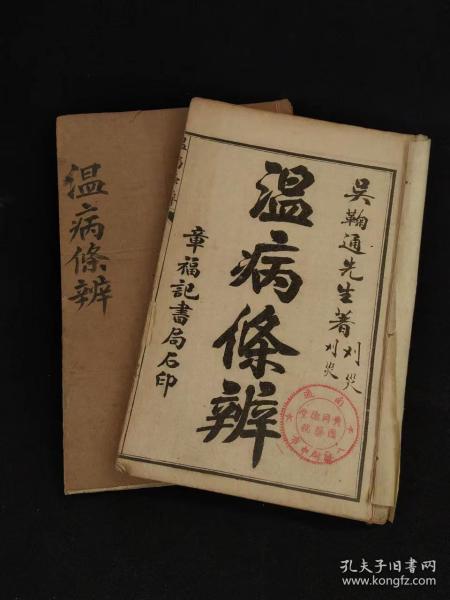 温病條辨
吳鞠通先生著
刘災
刘災
温病條辨
章福記書局石印
孔夫子旧书网
www.kongfz.com